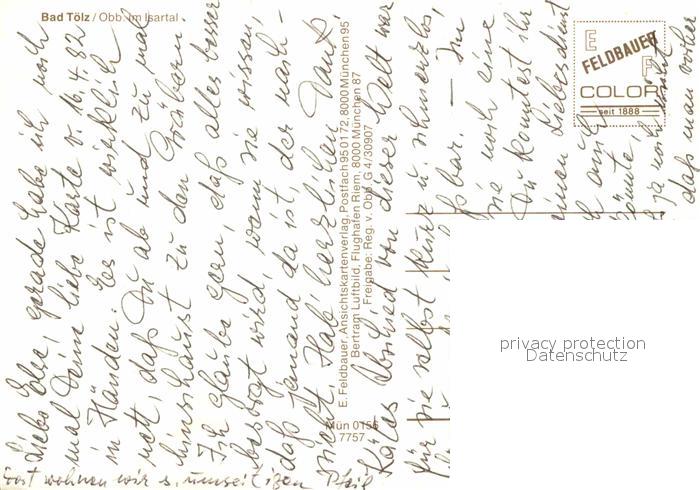 Bad Tölz / Obb. im Isartal
FELDBAUER
COLOR
seit 1888
E. Feldbauer, Ansichtskartenverlag, Postfach 95 01 72, 8000 München 95
Bertram Luftbild, Flughafen Riem, 8000 München 87
Freigabe: Reg. v. Obb. G 4/30907
Mün 0156
7757
Liebe Else, gerade habe ich noch
mal Deine liebe Karte v. 16.4.82
in Händen. Es ist wirklich
nett, daß Du ab und zu mal
hinschaust zu den Gräbern.
Ich glaube gern, daß alles besser
besorgt wird, wenn sie wissen,
daß jemand da ist, der nach-
sieht. Hab' herzlichen Dank.
Käles Abschied von dieser Welt war
für sie selbst kurz u. schmerzlos,
bar. — Im
sie noch eine
Du konntest ihr
einen Liebesdienst
auch
könnte,
ja noch
daß man vorher
Dort wohnen wir s. umseitigen Pfeil
privacy protection
Datenschutz